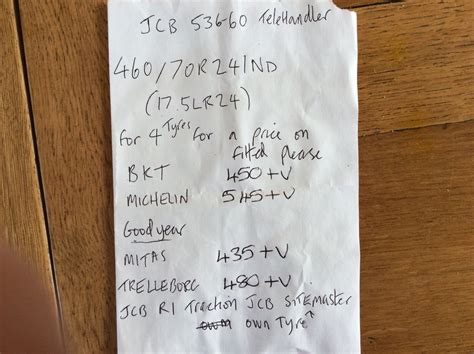 JCB 536-60 TeleHandler
460/70R24 IND
(17.5LR24)
for 4 Tyres for a price on
fitted please
BKT 450+V
MICHELIN 545+V
Goodyear
MITAS 435+V
TRELLEBORG 480+V
JCB R1 Traction JCB SITEMASTER
own Tyre